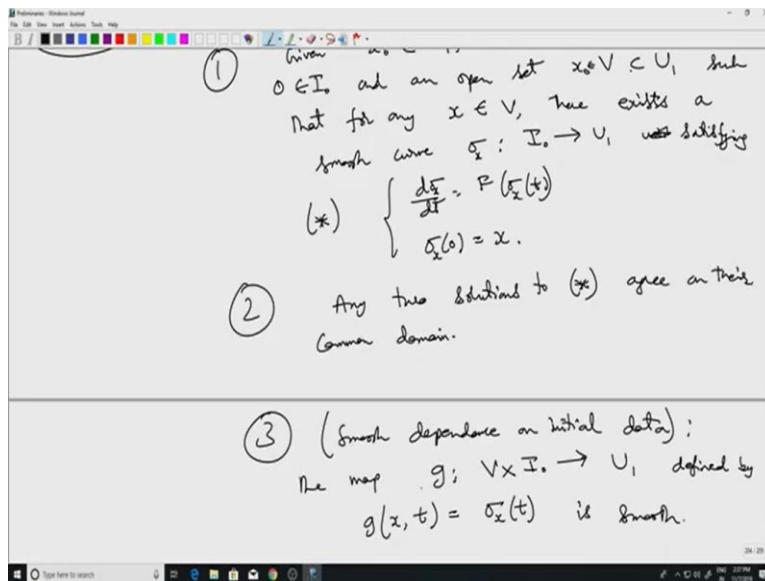 Preliminaries - Windows Journal
File Edit View Insert Actions Tools Help
B I
① Given
0 ∈ I₀ and an open set x₀ ∈ V ⊂ U₁ such
that for any x ∈ V, there exists a
smooth curve σₓ : I₀ → U₁ satisfying
(*) { dσₓ/dt = F(σₓ(t))
σₓ(0) = x.
② Any two solutions to (*) agree on their
Common domain.
③ (Smooth dependence on initial data):
The map g: V × I₀ → U₁ defined by
g(x, t) = σₓ(t) is smooth.
Type here to search
ENG 2:37 PM
IN 11/7/2019